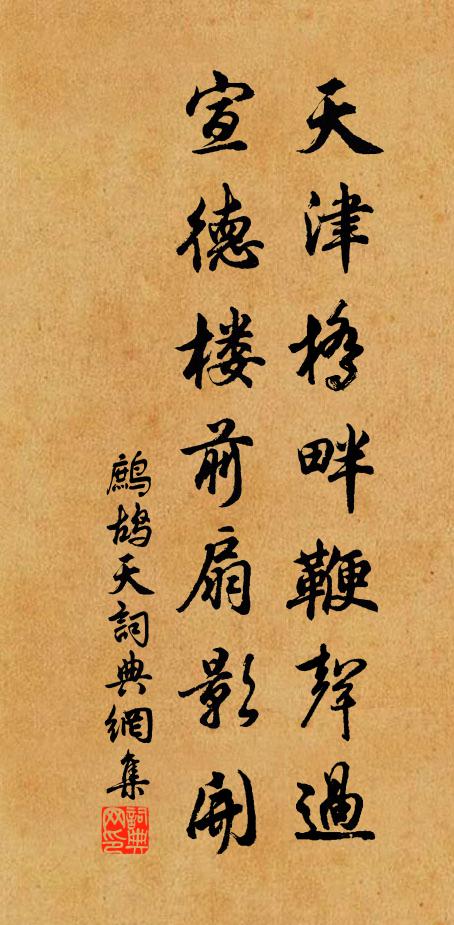 天津橋畔鞭聲過
宣德楼前扇影開
鷓鴣天詞典網集
詞典网印